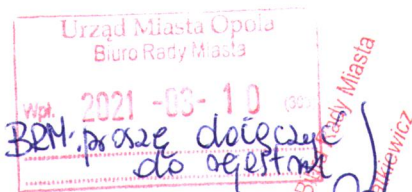 Urząd Miasta Opola
Biuro Rady Miasta
Wpł. 2021 -03- 10
BRM: proszę dołączyć
do rejestru
Rady Miasta